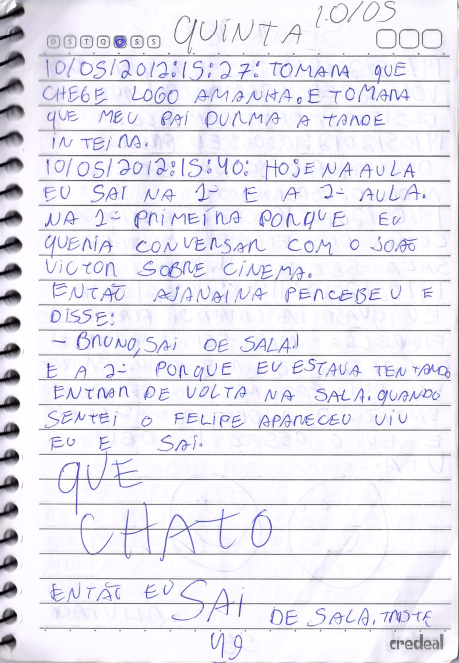 10/05
QUINTA
D S T Q Q S S
10/05/2012:15:27: TOMARA QUE
CHEGE LOGO AMANHA. E TOMARA
QUE MEU PAI DURMA A TARDE
INTEIRA.
10/05/2012:15:40: HOJE NA AULA
EU SAI NA 1ª E A 2ª AULA.
NA 1ª PRIMEIRA PORQUE EU
QUERIA CONVERSAR COM O JOAO
VICTOR SOBRE CINEMA.
ENTÃO AJANAINA PERCEBEU E
DISSE:
- BRUNO, SAI DE SALA!
E A 2ª PORQUE EU ESTAVA TENTANDO
ENTRAR DE VOLTA NA SALA. QUANDO
SENTEI O FELIPE APARECEU VIU
EU E SAI.
QUE
CHATO
ENTÃO EU SAI DE SALA. TRISTE
49
credeal